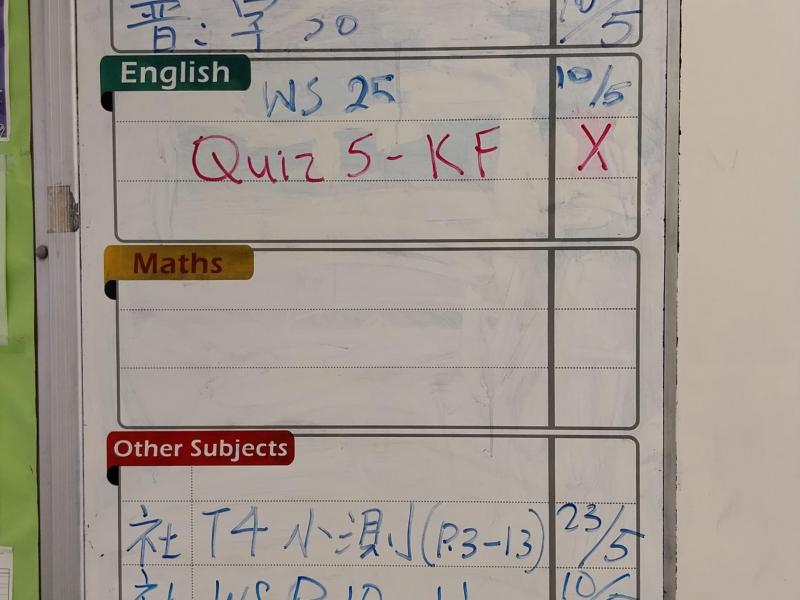 普：字 >0 10/5
English
WS 25 10/5
Quiz 5 - KF X
Maths
Other Subjects
社 T4 小測 (P.3-13) 23/5
社 WS P.10